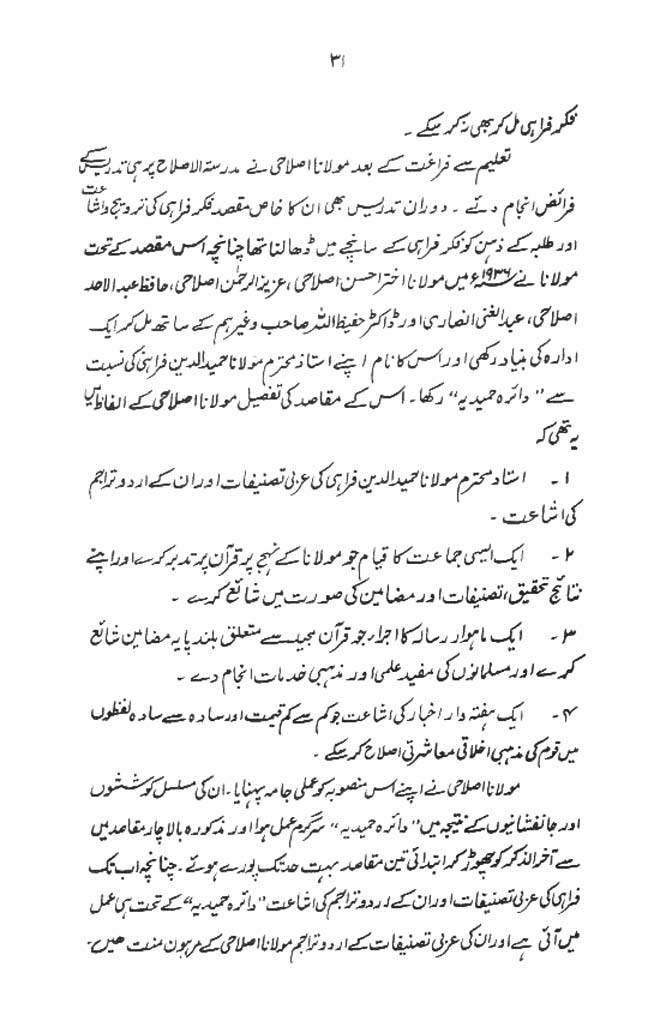 ۳۱
فکر فراہی مل کر بھی نہ کر سکے ۔
تعلیم سے فراغت کے بعد مولانا اصلاحی نے مدرستہ الاصلاح پر ہی تدریس کے
فرائض انجام دئے ۔ دوران تدریس بھی ان کا خاص مقصد فکر فراہی کی ترویج و اشاعت
اور طلبہ کے ذہن کو فکر فراہی کے سانچے میں ڈھالنا تھا چنانچہ اس مقصد کے تحت
مولانا نے ۱۹۳۶ء میں مولانا اختر احسن اصلاحی ، عزیز الرحمٰن اصلاحی ، حافظ عبد الاحد
اصلاحی ، عبد الغنی انصاری اور ڈاکٹر حفیظ اللہ صاحب وغیرہم کے ساتھ مل کر ایک
ادارہ کی بنیاد رکھی اور اس کا نام اپنے استاذ محترم مولانا حمید الدین فراہیؒ کی نسبت
سے "دائرہ حمیدیہ" رکھا ۔ اس کے مقاصد کی تفصیل مولانا اصلاحی کے الفاظ میں
یہ تھی کہ
۱ ۔ استاد محترم مولانا حمید الدین فراہی کی عربی تصنیفات اور ان کے اردو تراجم
کی اشاعت ۔
۲ ۔ ایک ایسی جماعت کا قیام جو مولانا کے نہج پر قرآن پر تدبر کرے اور اپنے
نتائج تحقیق ، تصنیفات اور مضامین کی صورت میں شائع کرے ۔
۳ ۔ ایک ماہوار رسالہ کا اجراء جو قرآن مجید سے متعلق بلند پایہ مضامین شائع
کرے اور مسلمانوں کی مفید علمی اور مذہبی خدمات انجام دے ۔
۴ ۔ ایک ہفتہ وار اخبار کی اشاعت جو کم سے کم قیمت اور سادہ سے سادہ لفظوں
میں قوم کی مذہبی اخلاقی معاشرتی اصلاح کر سکے ۔
مولانا اصلاحی نے اپنے اس منصوبہ کو عملی جامہ پہنایا ۔ ان کی مسلسل کوششوں
اور جانفشانیوں کے نتیجہ میں "دائرہ حمیدیہ" سرگرم عمل ہوا اور مذکورہ بالا چار مقاصد میں
سے آخر الذکر کو چھوڑ کر ابتدائی تین مقاصد بہت حد تک پورے ہوئے ۔ چنانچہ اب تک
فراہی کی عربی تصنیفات اور ان کے اردو تراجم کی اشاعت "دائرہ حمیدیہ" کے تحت ہی عمل
میں آئی ہے اور ان کی عربی تصنیفات کے اردو تراجم مولانا اصلاحی کے مرہون منت ھیں۔